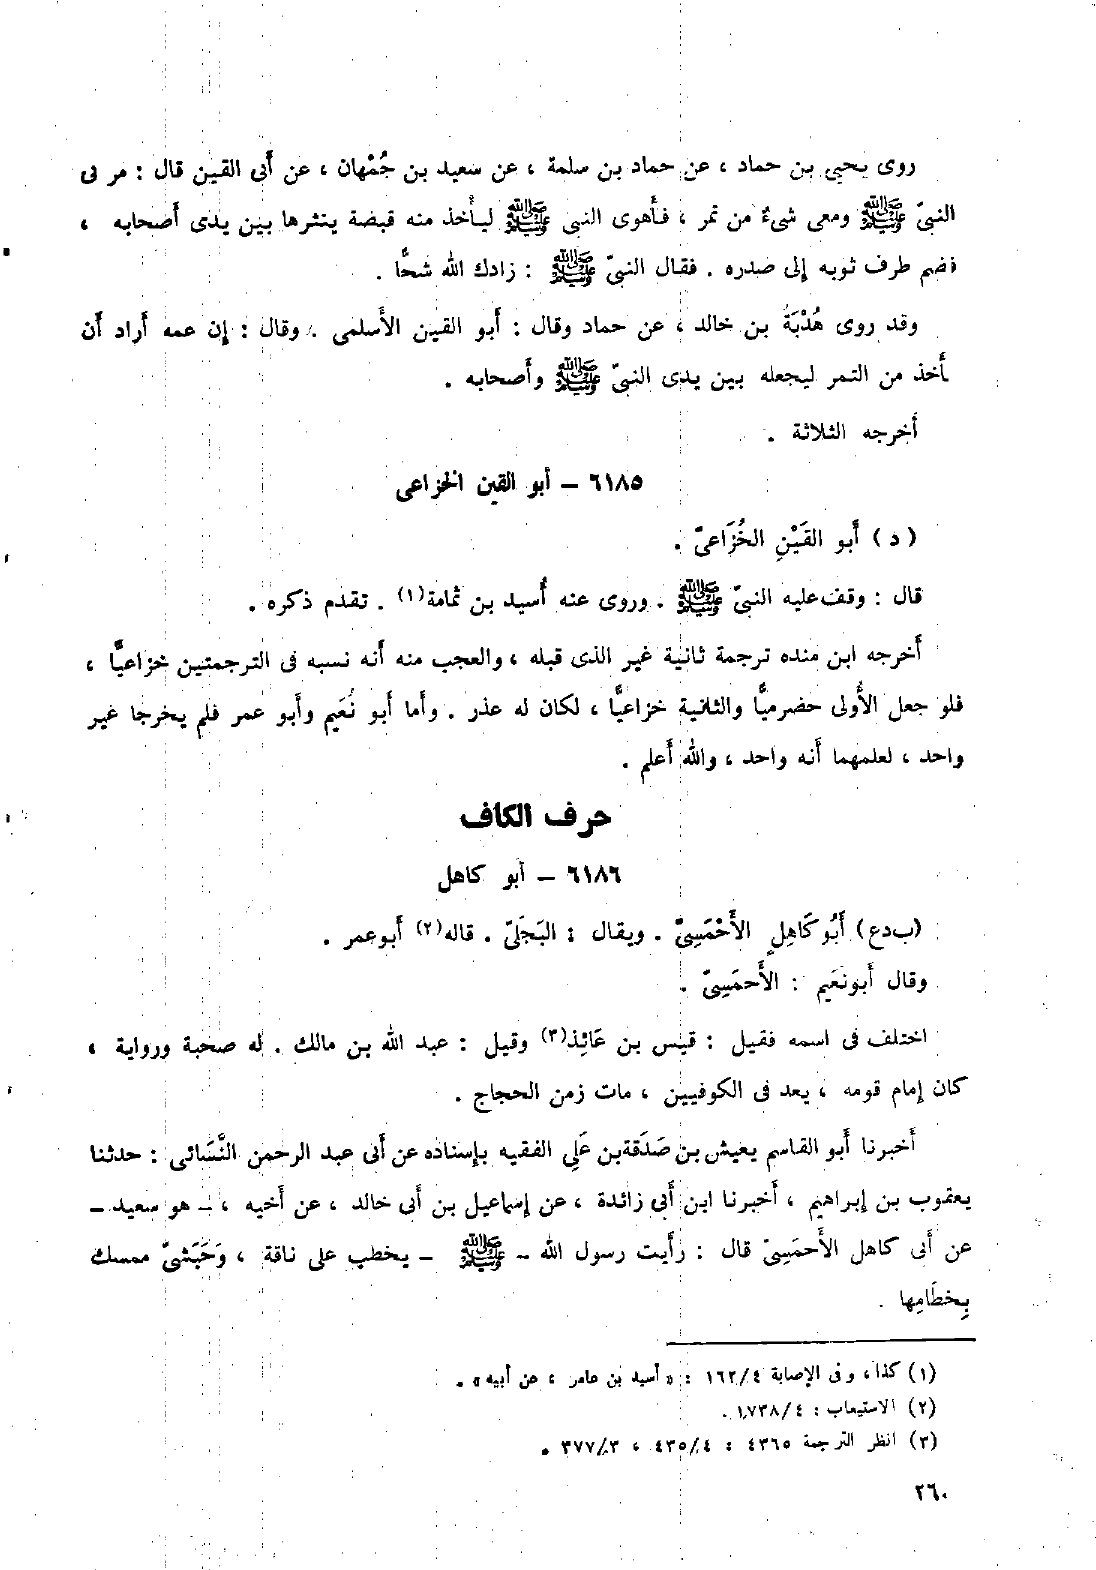 روى يحيى بن حماد ، عن حماد بن سلمة ، عن سعيد بن جُمْهان ، عن أبى القين قال : مر بى
النبىّ ﷺ ومعى شىءٌ من تمر ، فأهوى النبى ﷺ ليأخذ منه قبضة ينثرها بين يدى أصحابه ،
فضم طرف ثوبه إلى صدره . فقال النبىّ ﷺ : زادك الله شحًّا .
وقد روى هُدْبَةُ بن خالد ، عن حماد وقال : أبو القين الأسلمى . وقال : إن عمه أراد أن
يأخذ من التمر ليجعله بين يدى النبىّ ﷺ وأصحابه .
أخرجه الثلاثة .
٦١٨٥ – أبو القين الخزاعى
( د ) أبو القَيْنِ الخُزَاعىّ .
قال : وقف عليه النبىّ ﷺ . وروى عنه أُسيد بن ثمامة(١) . تقدم ذكره .
أخرجه ابن منده ترجمة ثانية غير الذى قبله ، والعجب منه أنه نسبه فى الترجمتين خزاعيًّا ،
فلو جعل الأُولى حضرميًّا والثانية خزاعيًّا ، لكان له عذر . وأما أبو نُعَيم وأبو عمر فلم يخرجا غير
واحد ، لعلمهما أنه واحد ، والله أعلم .
حرف الكاف
٦١٨٦ – أبو كاهل
(ب د ع) أَبُو كَاهِلٍ الأَحْمَسِىّ . ويقال : البَجَلىّ . قاله(٢) أبو عمر .
وقال أبو نعَيم : الأَحمَسِىّ .
اختلف فى اسمه فقيل : قيس بن عَائِذ(٣) وقيل : عبد الله بن مالك . له صحبة ورواية ،
كان إمام قومه ، يعد فى الكوفيين ، مات زمن الحجاج .
أخبرنا أبو القاسم يعيش بن صَدَقة بن عَلِى الفقيه بإسناده عن أبى عبد الرحمن النَّسَائى : حدثنا
يعقوب بن إبراهيم ، أخبرنا ابن أبى زائدة ، عن إسماعيل بن أبى خالد ، عن أخيه ، – هو سعيد –
عن أبى كاهل الأحمَسِىّ قال : رأيت رسول الله – ﷺ – يخطب على ناقة ، وَحَبَشىّ ممسك
بِخطَامِها .
(١) كذا ، وفى الإصابة ١٦٢/٤ : « أسيد بن عامر ، عن أبيه » .
(٢) الاستيعاب : ١٧٣٨/٤ .
(٣) انظر الترجمة ٤٣٦٥ : ٤٣٥/٤ ، ٣٧٧/٣ .
٢٦٠